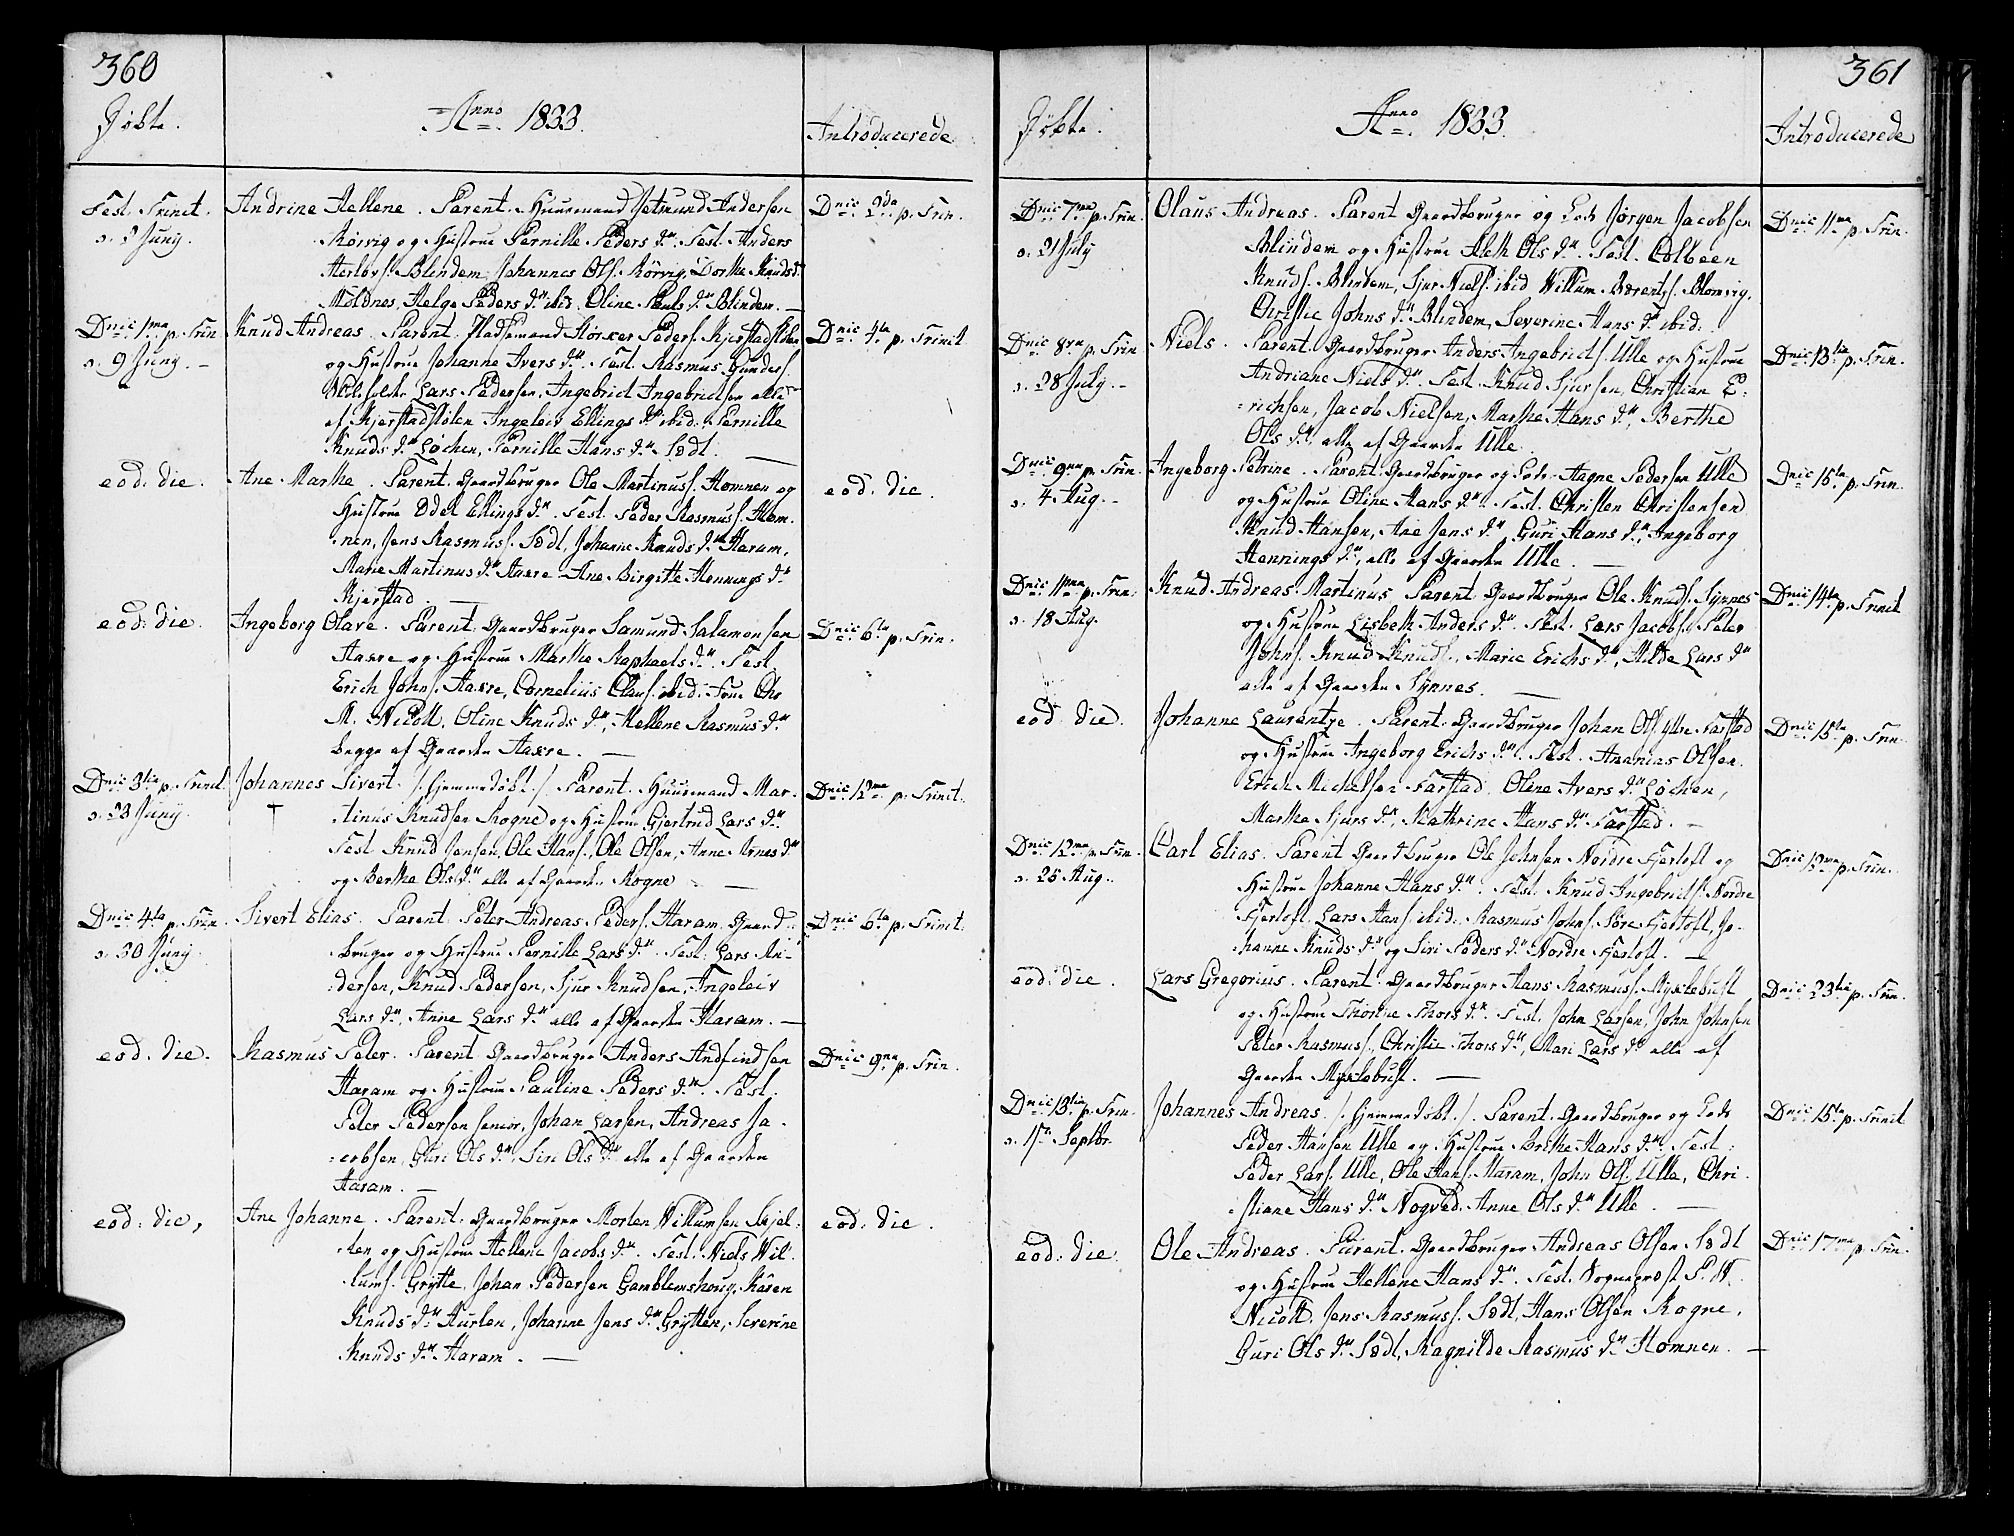 360
Døbte.
Anno 1833.
Introducerede
Fest. Trinit.
d. 2 Juny.
Andrine Hellene. Parent. Huusmand Jetmund Andersen
Rörvig og Hustrue Pernille Peders dr. Test. Anders
Herlovs. Blindem, Johannes Ols. Rörvig, Dorthe Knuds dr
Moldnes, Helge Peders dr. ibid. Oline Pauls dr. Blindem. —
Dnic. 2da p. Trin.
Dnic. 1ma p. Trin
d. 9 Juny. —
Knud Andreas. Parent. Pladsemand Störker Peders. Kjerstadstölen
og Hustrue Johanne Ivers dr. Test. Rasmus Gunders.
Lars Pedersen, Ingebrict Ingebrictsen alle
af Kjerstadstölen Ingeleiv Ellings dr. ibid. Pernille
Knuds dr. Löchen, Pernille Hans dr. Södt. —
Dnic. 4ta p. Trinit
eod. die.
Ane Marthe. Parent. Gaardbruger Ole Martinuss. Homnen og
Hustrue Odel Ellings dr. Test. Peder Rasmuss. Hom-
nen, Jens Rasmuss. Södt, Johanne Knuds dr. Haram,
Marie Martinus dr. Aakre Ane Birgitte Hennings dr
Kjerstad. —
eod. die.
eod: die.
Ingeborg Olave. Parent. Gaardbruger Samund Salamonsen
Aakre og Hustrue Marthe Raphaels dr. Test.
Erich Johns. Aakre, Cornelius Claus. ibid. Frue Chr
M. Nicoll, Oline Knuds dr, Hellene Rasmus dr
begge af Gaarden Aakre. —
Dnic. 6ta p. Trin.
Dnic. 3tia p. Trinit.
d. 23 Juny.
Johannes Sivert /: hjemmedøbt :/ Parent. Huusmand Mar-
†
tinus Knudsen Rogne og Hustrue Gjertrud Lars dr.
Test. Knud Jensen, Ole Hans., Ole Olsen, Anne Arnes dr
og Berthe Ols dr. alle af Gaarden Rogne —
Dnic. 12ma p. Trinit.
Dnic. 4ta p. Trin.
d. 30 Juny.
Sivert Elias. Parent. Peter Andreas Peders. Haram Gaard-
bruger og Hustrue Pernille Lars dr. Test. Lars An-
dersen, Knud Pedersen, Sjur Knudsen, Ingeleiv
Lars dr, Anne Lars dr. alle af Gaarden Haram. —
Dnic. 6ta p. Trinit.
eod. die.
Rasmus Peter. Parent. Gaardbruger Anders Andfindsen
Haram og Hustrue Pauline Peders dr. Test.
Peter Pedersen senior, Johan Larsen, Andreas Ja-
cobsen, Guri Ols dr, Siri Ols dr. alle af Gaarden
Haram. —
Dnic. 9na p. Trin.
eod: die,
Ane Johanne. Parent. Gaardbruger Morten Willumsen Skjel-
ten og Hustrue Hellene Jacobs dr. Test. Niels Wil-
lums. Grytte, Johan Pedersen Gamblemshoug, Karen
Knuds dr. Hurlen, Johanne Jens dr. Grytten, Severine
Knuds dr. Haram. —
eod: die.
361
Døbte.
Anno 1833.
Introducerede
Dnic. 7ma p. Trin.
d. 21 July
Olaus Andreas. Parent. Gaardbruger og Lods Jörgen Jacobsen
Blindem og Hustrue Aleth Ols dr. Test. Colbeen
Knuds. Blindem, Sjur Niels. ibid Willum Berents. Blomvig,
Christie Johns dr. Blindem, Severine Hans dr. ibid.
Dnic. 11ma p. Trin.
Dnic. 8va p. Trin
d. 28 July. —
Niels. Parent. Gaardbruger Anders Ingebricts. Ulle og Hustrue
Andriane Niels dr. Test. Knud Sjursen, Christian E-
richsen, Jacob Nielsen, Marthe Hans dr, Berthe
Ols dr. alle af Gaarden Ulle.
Dnic. 13tia p. Trin.
Dnic. 9na p. Trin.
d. 4 Aug. —
Ingeborg Petrine. Parent. Gaardbruger og Lods Hagne Pedersen Ulle
og Hustrue Oline Hans dr. Test. Christen Christensen
Knud Hansen, Ane Jens dr. Guri Hans dr, Ingeborg
Hennings dr, alle af Gaarden Ulle. —
Dnic. 15ta p. Trin.
Dnic. 11ma p. Trin.
d. 18 Aug.
Knud Andreas Martinus. Parent. Gaardbruger Ole Knuds. Synnes
og Hustrue Lisbeth Anders dr. Test. Lars Jacobs. Peter
Johns. Knud Knuds., Marie Erichs dr, Hilde Lars dr
alle af Gaarden Synnes. —
Dnic. 14ta p. Trinit
eod: die.
Johanne Laurentze. Parent. Gaardbruger Johan Ols. Ytre Farstad
og Hustrue Ingeborg Erichs dr. Test. Ananias Olsen
Erich Michelsen Farstad, Oline Ivers dr. Löchen,
Marthe Sjurs dr, Kathrine Hans dr. Farstad. —
Dnic. 15ta p. Trin.
Dnic. 12ma p. Trin.
d. 25 Aug.
Carl Elias. Parent. Gaardbruger Ole Johnsen Nordre Fjertoft og
Hustrue Johanne Hans dr. Test. Knud Ingebricts. Nordre
Fjertoft, Lars Hans. ibid. Rasmus Johns. Söre Fjertoft, Jo-
hanne Knuds dr og Siri Peders dr Nordre Fjertoft. —
Dnic. 19ma p. Trin.
eod: die.
Lars Gregorius. Parent. Gaardbruger Hans Rasmuss. Myklebust
og Hustrue Thorine Thors dr. Test. John Larsen, John Johnsen
Peter Rasmuss., Christie Thors dr, Mari Lars dr alle af
Gaarden Myklebust. —
Dnic. 23tia p. Trin.
Dnic. 13tia p. Trin.
d. 1ste Septbr.
Johannes Andreas. /: hjemmedøbt :/. Parent. Gaardbruger og Lods
Peder Hansen Ulle og Hustrue Brithe Hans dr. Test.
Peder Lars. Ulle, Ole Hans. Haram, John Ols. Ulle, Chri-
stiane Hans dr. Nogved, Anne Ols dr. Ulle. —
Dnic. 15ta p. Trinit
eod: die.
Ole Andreas. Parent. Gaardbruger Andreas Olsen Södt
og Hustrue Hellene Hans dr. Test. Sogneprest P. W.
Nicoll, Jens Rasmuss. Södt, Hans Olsen Rogne,
Guri Ols dr. Södt, Ragnilde Rasmus dr. Homnen. —
Dnic. 17ma p. Trin.